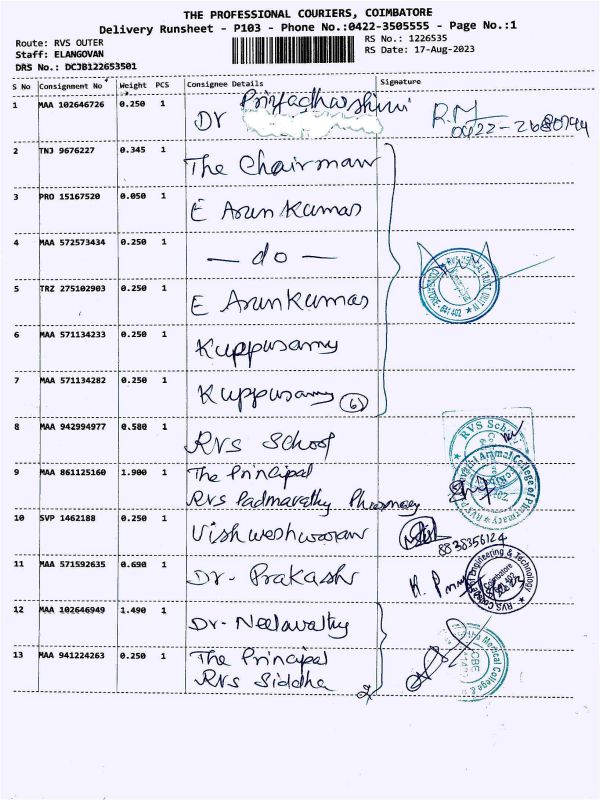 THE PROFESSIONAL COURIERS, COIMBATORE
Delivery Runsheet - P103 - Phone No.:0422-3505555 - Page No.:1
Route: RVS OUTER
Staff: ELANGOVAN
DRS No.: DCJB122653501
RS No.: 1226535
RS Date: 17-Aug-2023
S No Consignment No Weight PCS Consignee Details Signature
1 MAA 102646726 0.250 1 Dr Priyadharshini R.M
2 TNJ 9676227 0.345 1 The Chairman
3 PRO 15167520 0.050 1 E Arun Kumar
4 MAA 572573434 0.250 1 — do —
5 TRZ 275102903 0.250 1 E Arun Kumar
6 MAA 571134233 0.250 1 Kuppusamy
7 MAA 571134282 0.250 1 Kuppusamy 6
8 MAA 942994977 0.580 1 RVS School
RVS School
9 MAA 861125160 1.900 1 The Principal
RVS Padmavathy Pharmacy
College of Pharmacy
10 SVP 1462188 0.250 1 Vishweshwaran
8838356124
11 MAA 571592635 0.690 1 Dr. Prakash
RVS College of Engineering & Technology
Coimbatore
12 MAA 102646949 1.490 1 Dr. Neelavathy
13 MAA 941224263 0.250 1 The Principal
RVS Siddha
Medical College &